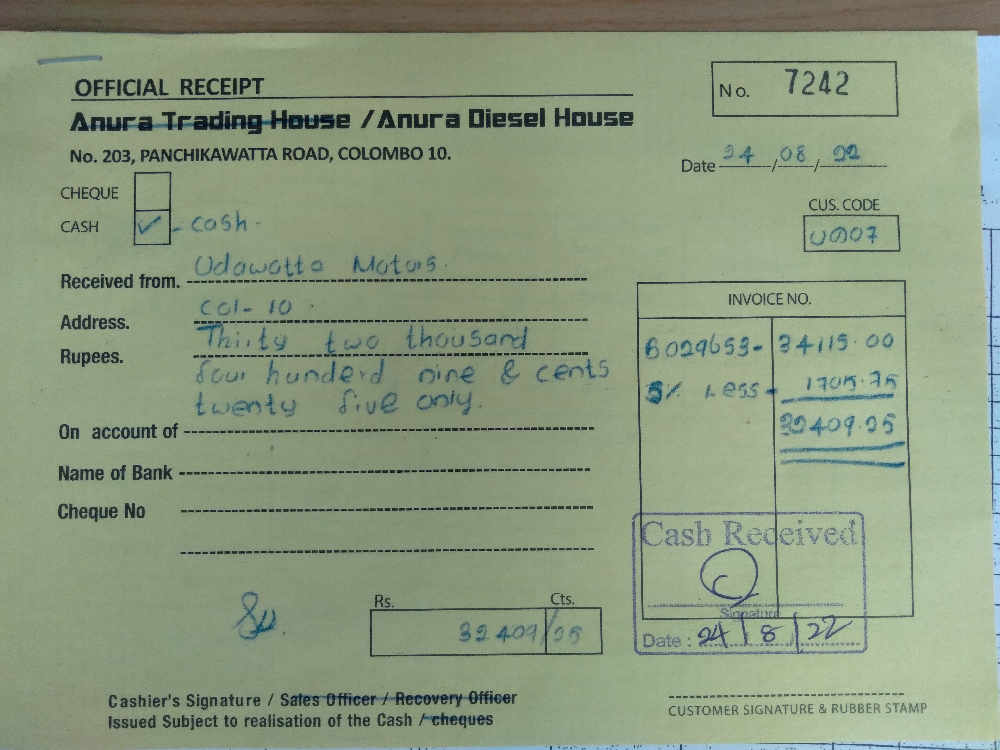 OFFICIAL RECEIPT
No. 7242
Anura Trading House / Anura Diesel House
No. 203, PANCHIKAWATTA ROAD, COLOMBO 10.
Date 24/08/22
CHEQUE
CASH ✓ - cash.
CUS. CODE
U007
Received from. Udawatta Motors.
Address. Col-10.
Rupees. Thirty two thousand
four hunderd nine & cents
twenty five only.
INVOICE NO.
B029653- 34115.00
5% Less - 1705.75
32409.25
On account of
Name of Bank
Cheque No
Cash Received
Signature
Date : 24/8/22
Rs. Cts.
32409/25
Cashier's Signature / Sales Officer / Recovery Officer
Issued Subject to realisation of the Cash / cheques
CUSTOMER SIGNATURE & RUBBER STAMP